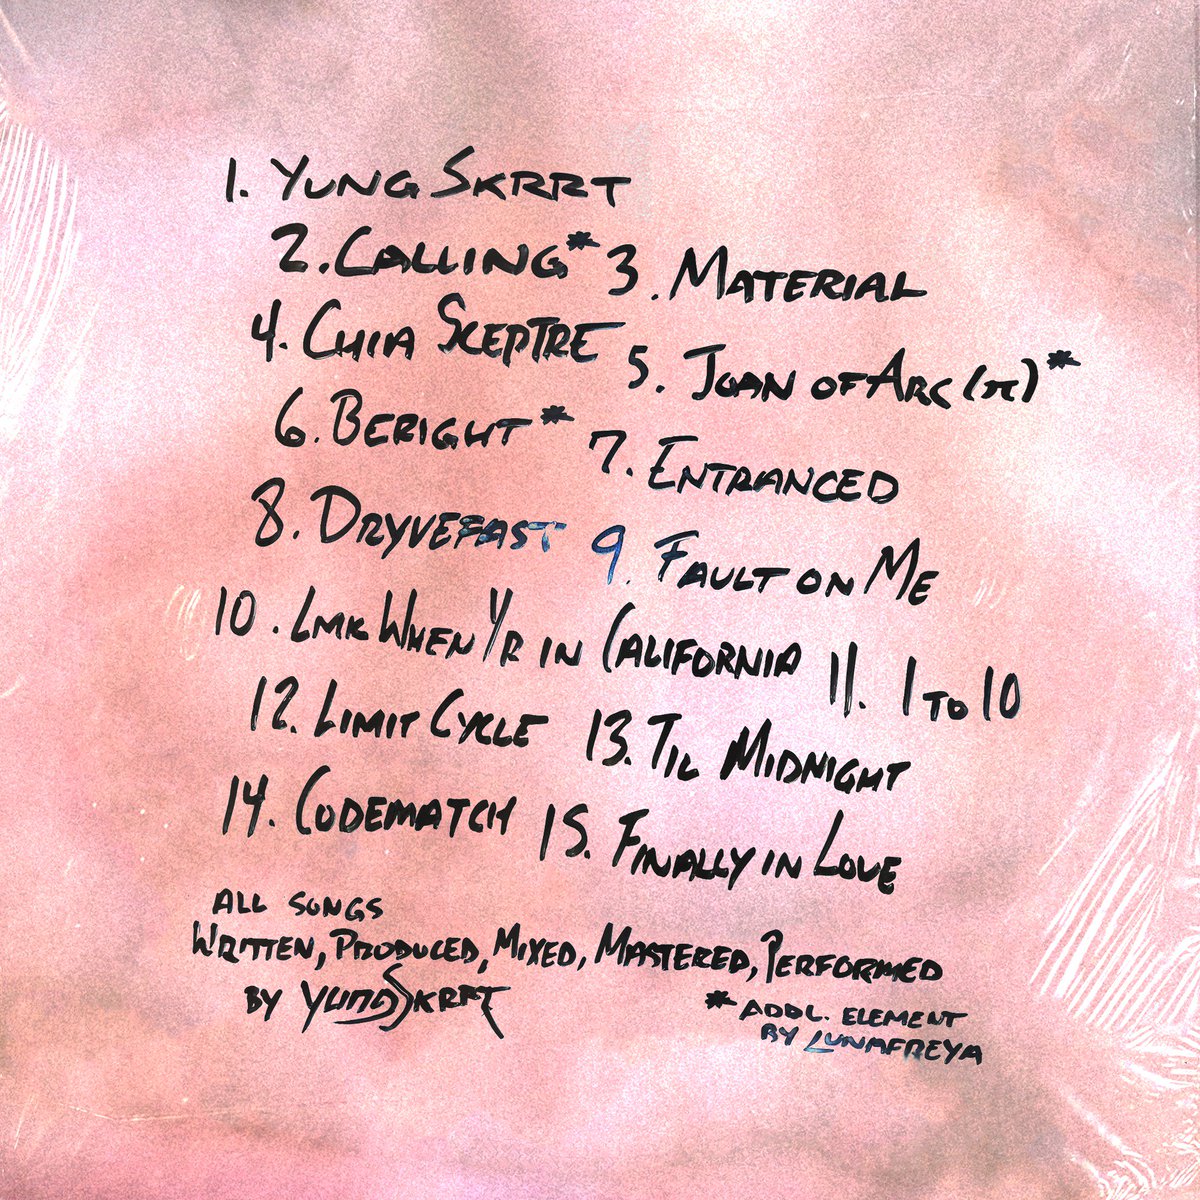 1. Yung Skrrt
2. Calling* 3. Material
4. Chia Sceptre 5. Joan of Arc (π)*
6. Beright* 7. Entranced
8. Dryvefast 9. Fault on Me
10. Lmk When Yr in California 11. 1 to 10
12. Limit Cycle 13. Til Midnight
14. Codematch 15. Finally in Love
All songs
Written, Produced, Mixed, Mastered, Performed
by YungSkrrt
* Addl. element
by Lunafreya